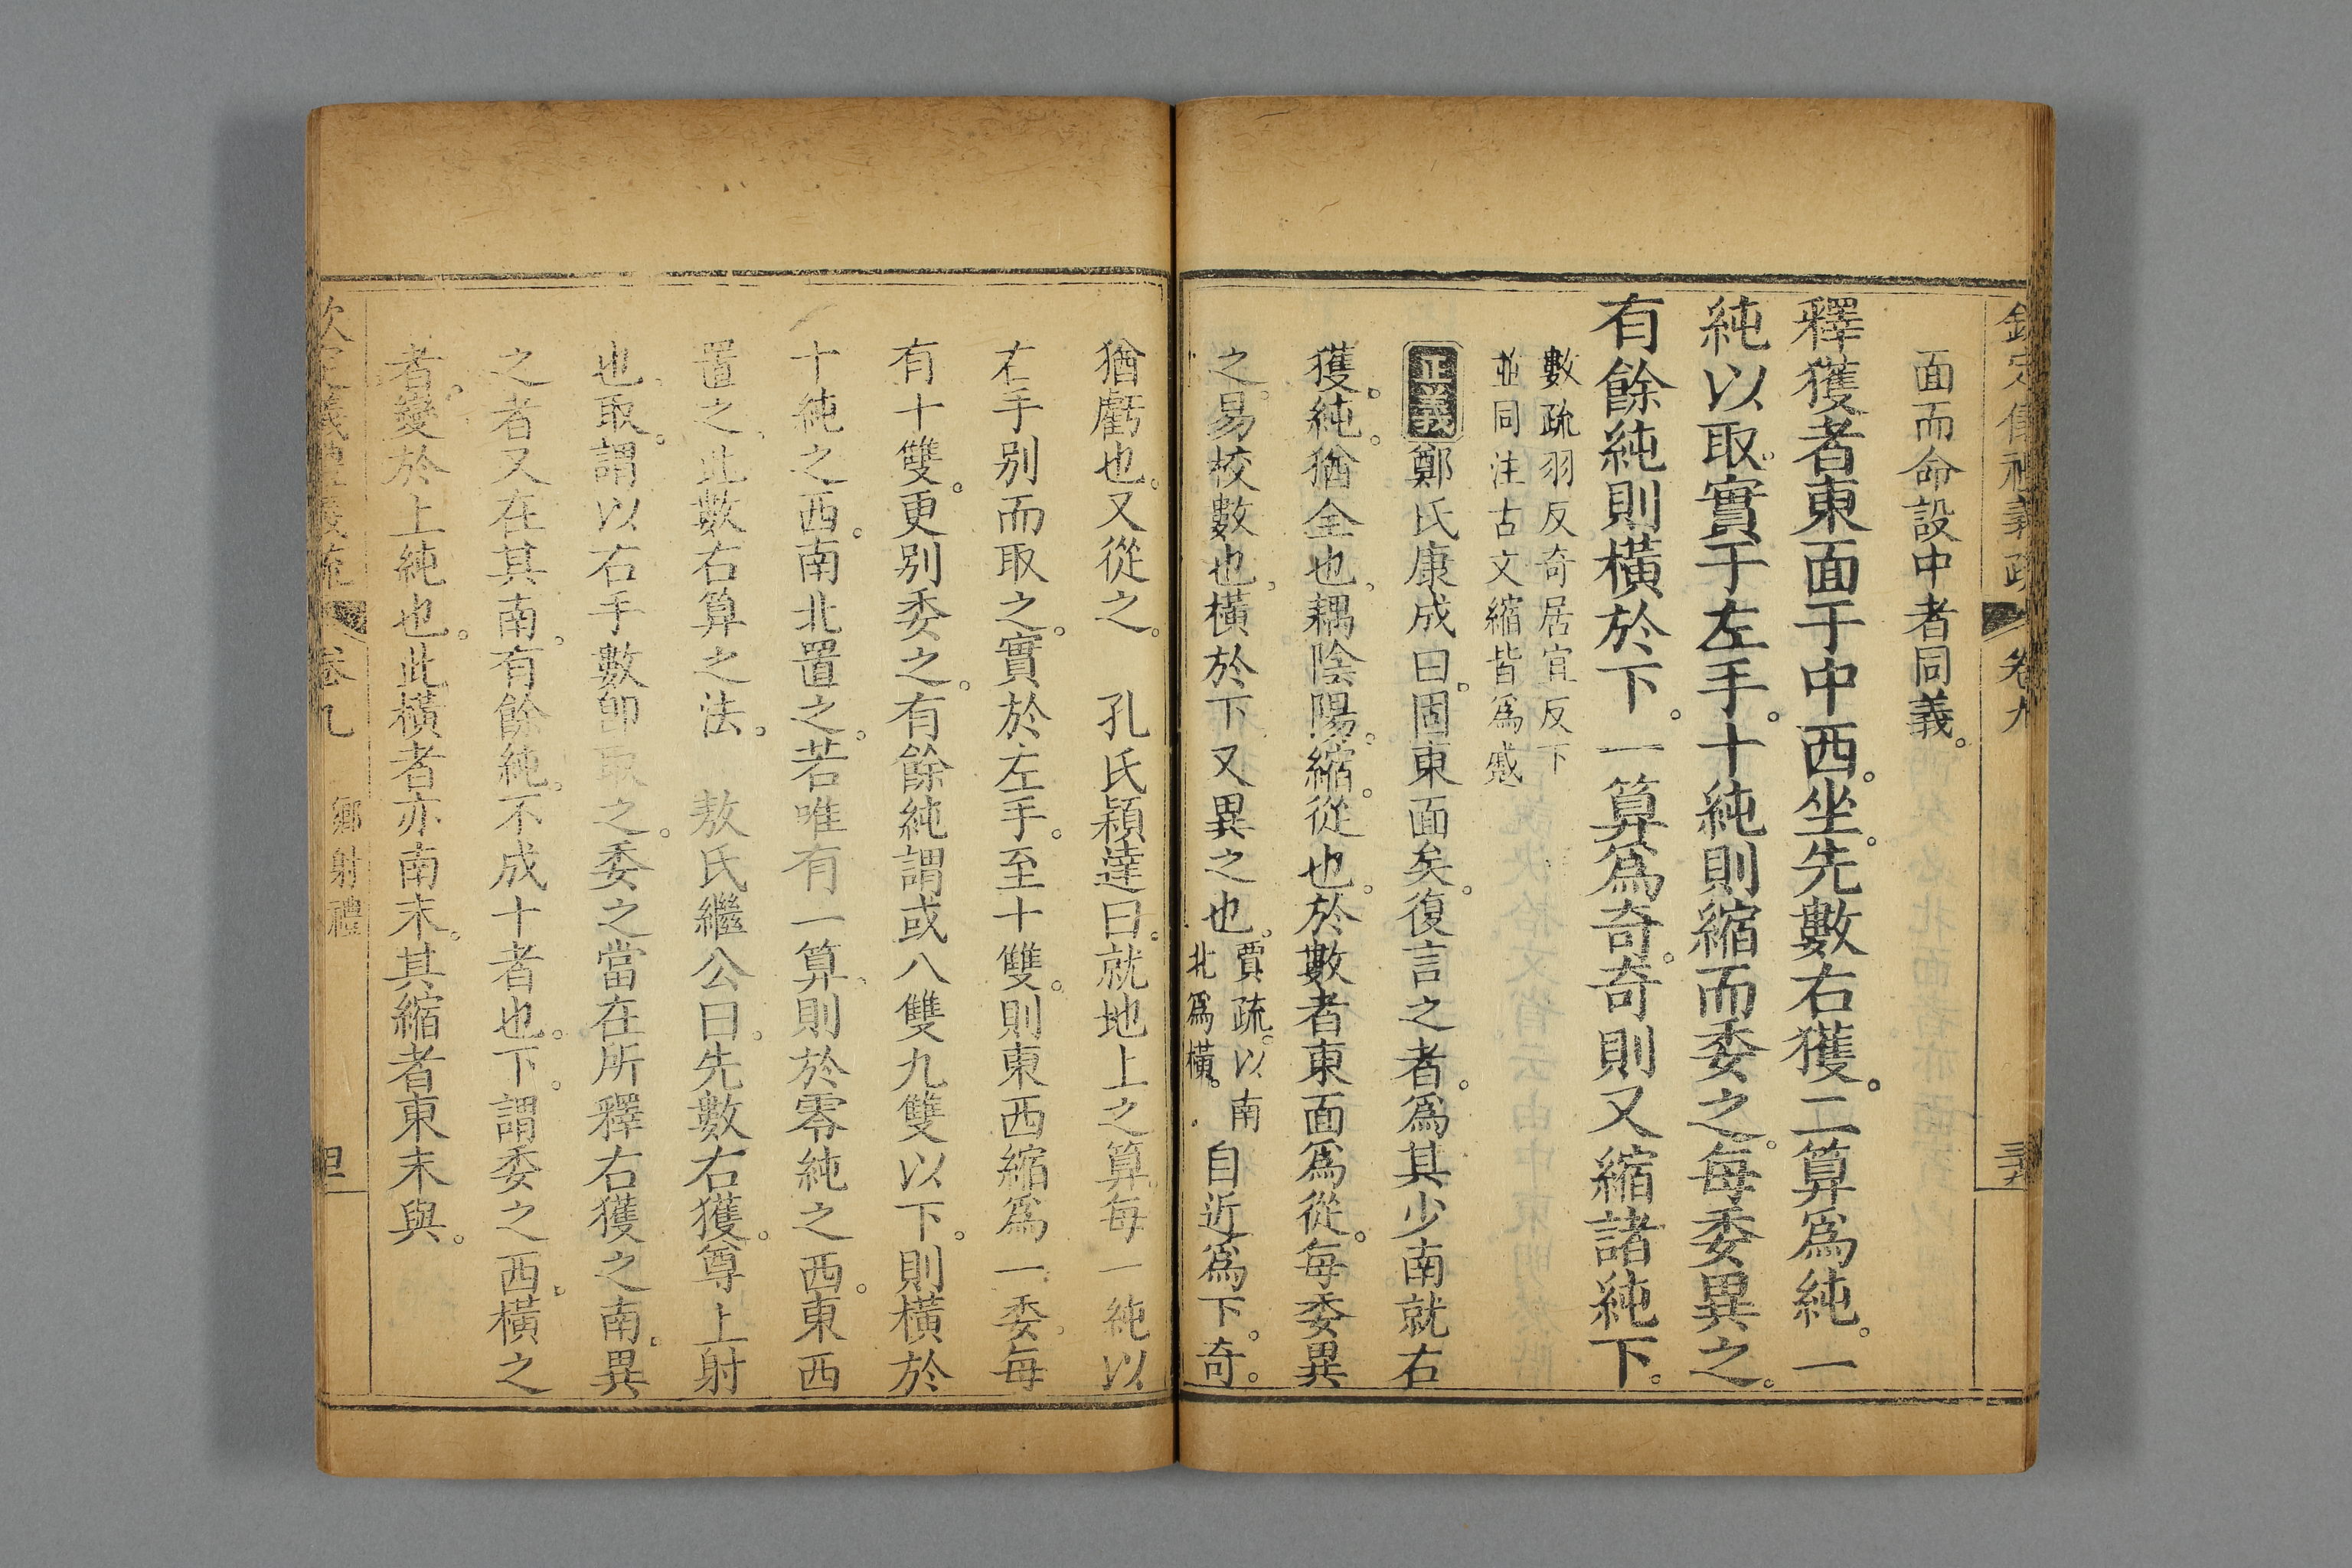 欽定儀禮義疏 卷九 三九
面而命設中者同義。
釋獲者東面于中西。坐。先數右獲。二算爲純。一
純以取。實于左手。十純則縮而委之。每委異之。
有餘純則橫於下。一算爲奇。奇則又縮諸純下。
數疏羽反奇居宜反下
並同注古文縮皆爲蹙
正義鄭氏康成曰。固東面矣。復言之者。爲其少南就右
獲。純。猶全也。耦陰陽。縮。從也。於數者東面爲從。每委異
之。易校數也。橫於下。又異之也。賈疏。以南北爲橫。自近爲下。奇。
猶虧也。又從之。 孔氏穎達曰。就地上之算。每一純以
右手別而取之。實於左手。至十雙。則東西縮爲一委。每
有十雙。更別委之。有餘純謂或八雙九雙以下。則橫於
十純之西。南北置之。若唯有一算。則於零純之西。東西
置之。此數右算之法。 敖氏繼公曰。先數右獲。尊上射
也。取。謂以右手數卽取之。委之當在所釋右獲之南。異
之者又在其南。有餘純。不成十者也。下。謂委之西。橫之
者。變於上純也。此橫者亦南末。其縮者東末與。
欽定儀禮義疏 卷九 鄉射禮